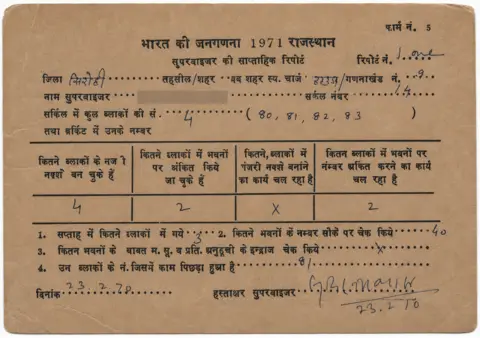 फार्म नं. 5
भारत की जनगणना 1971 राजस्थान
सुपरवाइजर की साप्ताहिक रिपोर्ट रिपोर्ट नं. 1 one
जिला सिरोही तहसील/शहर वन शहर स्प. चार्ज /गणनाखंड नं. 9
नाम सुपरवाइजर सर्कल नम्बर 14
सर्किल में कुल ब्लाकों की सं. 4 (80, 81, 82, 83)
तथा सर्किट में उनके नम्बर
कितने ब्लाकों के नजरी नक्शे बन चुके हैं
कितने ब्लाकों में भवनों पर अंकित किये जा चुके हैं
कितने, ब्लाकों में पंजरी नक्शे बनाने का कार्य चल रहा है
कितन ब्लाकों में भवनों पर नम्बर अंकित करने का कार्य चल रहा है
4 2 x 2
1. सप्ताह में कितने ब्लाकों में गये 3 2. कितने भवनों के नम्बर मौके पर चेक किये 40
3. कितन भवनों के बाबत म. सू. व प्रति. अनुसूची के इन्द्राज चेक किये x
4. उन ब्लाकों के नं. जिसमें काम पिछड़ा हुआ है 81
दिनांक 23.2.70 हस्ताक्षर सुपरवाइजर
23.2.70